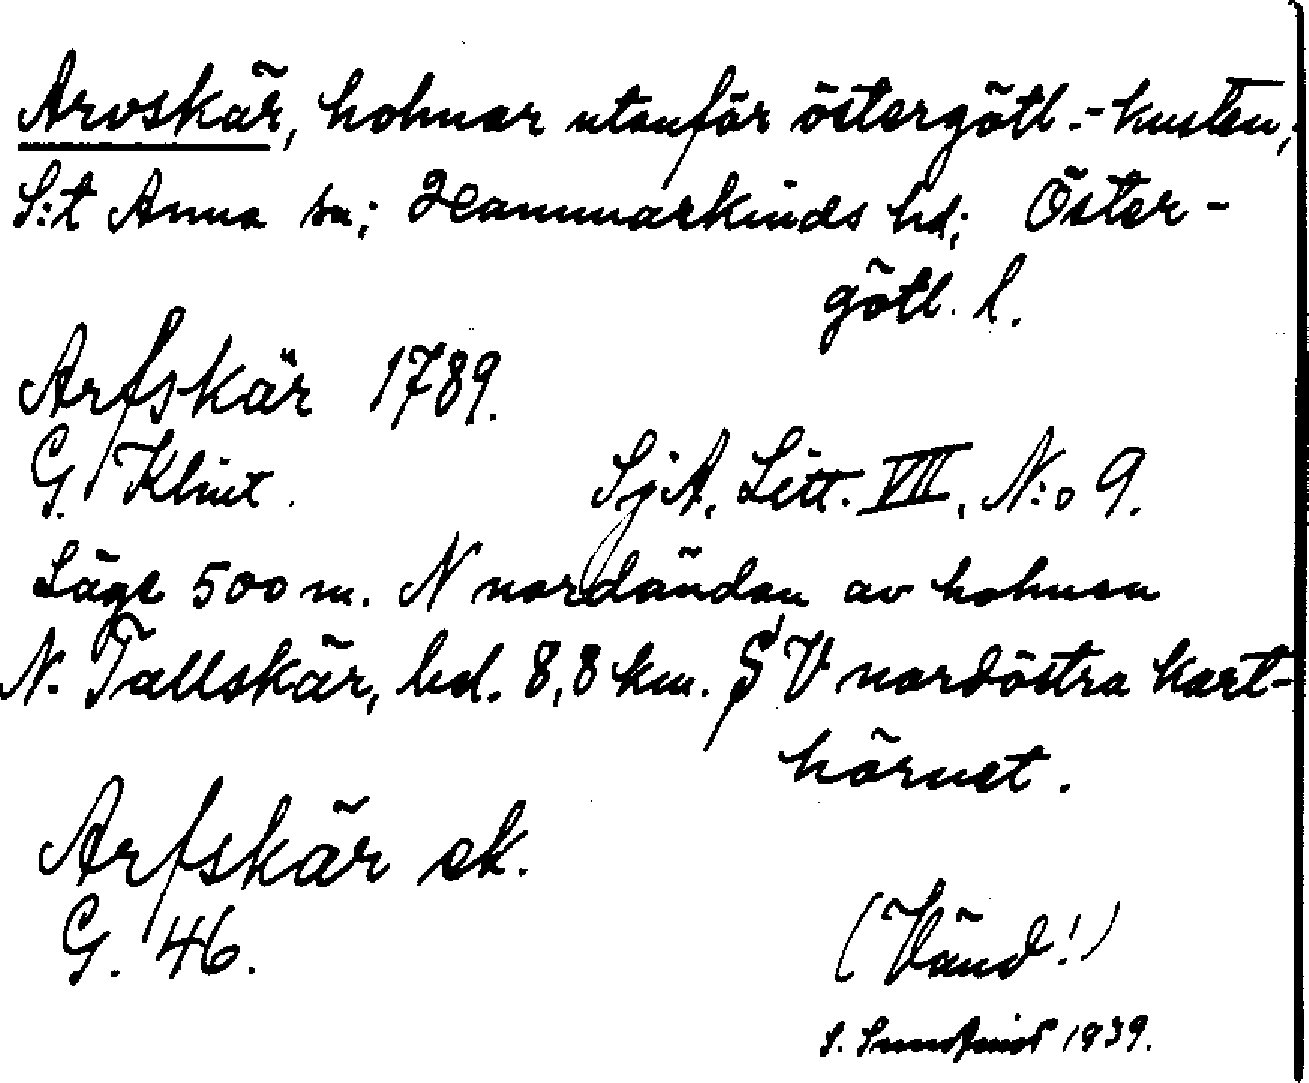 Arvskär, holmar utanför östergötl.-kusten,
S:t Anna sn; Hammarkinds hd; Öster-
götl. l.
Arfskär 1789.
G. Klint. SjA, Litt. VII, N:o 9.
Läge 500 m. N nordändan av holmen
N. Tallskär, bd. 8,8 km. SV nordöstra kart-
hörnet.
Arfskär ek.
G. 46.
(Vänd!)
S. 1939.